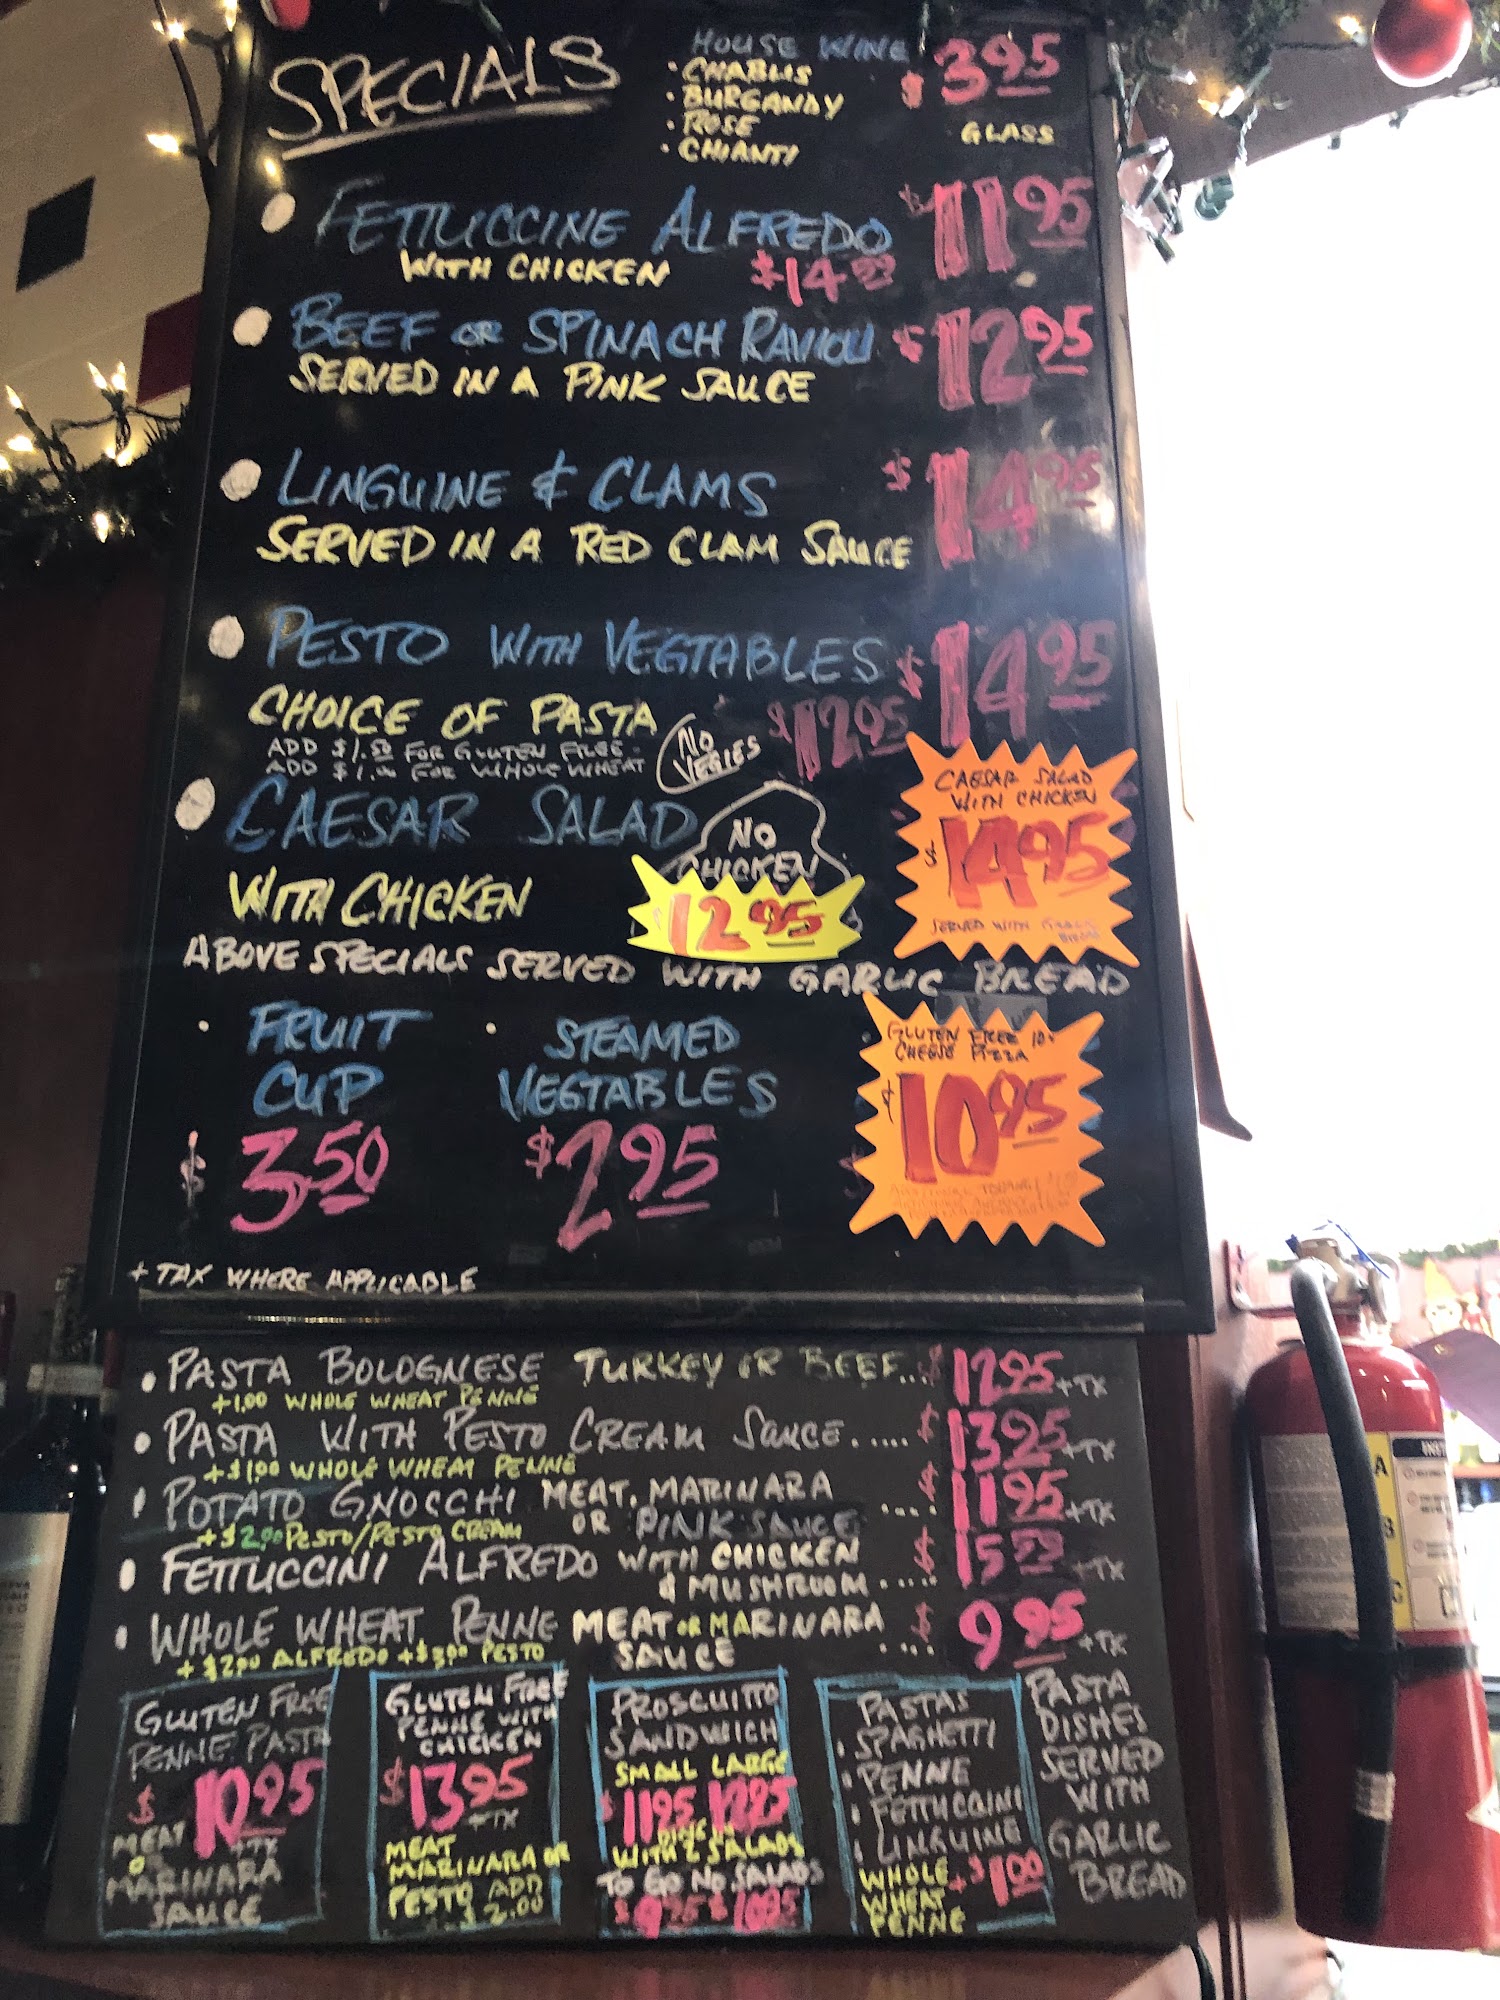 SPECIALS
HOUSE WINE
• CHABLIS
• BURGANDY
• ROSE
• CHIANTI
$3.95
GLASS
FETTUCCINE ALFREDO $11.95
WITH CHICKEN
BEEF OR SPINACH RAVIOLI $12.95
SERVED IN A PINK SAUCE
LINGUINE & CLAMS $14.95
SERVED IN A RED CLAM SAUCE
PESTO WITH VEGTABLES $14.95
CHOICE OF PASTA
NO VEGIES
$12.95
ADD $1.50 FOR GLUTEN FREE
ADD $1.00 FOR WHOLE WHEAT
CAESAR SALAD
WITH CHICKEN
NO
CHICKEN
12.95
CAESAR SALAD
WITH CHICKEN
$14.95
SERVED WITH GARLIC
BREAD
ABOVE SPECIALS SERVED WITH GARLIC BREAD
• FRUIT
CUP
$3.50
• STEAMED
VEGTABLES
$2.95
GLUTEN FREE 10"
CHEESE PIZZA
10.95
+ TAX WHERE APPLICABLE
• PASTA BOLOGNESE TURKEY OR BEEF... $12.95 +TX
+1.00 WHOLE WHEAT PENNE
• PASTA WITH PESTO CREAM SAUCE..... $13.25 +TX
+$1.00 WHOLE WHEAT PENNE
POTATO GNOCCHI MEAT, MARINARA
OR PINK SAUCE .... $11.95 +TX
+$2.00 PESTO/PESTO CREAM
• FETTUCCINI ALFREDO WITH CHICKEN
& MUSHROOM .....
+TX
• WHOLE WHEAT PENNE MEAT OR MARINARA
SAUCE .... $9.95 +TX
+$2.00 ALFREDO +$3.00 PESTO
GLUTEN FREE
PENNE PASTA
$10.95
+TX
MEAT
OR
MARINARA
SAUCE
GLUTEN FREE
PENNE WITH
CHICKEN
$13.95
+TX
MEAT
MARINARA OR
PESTO ADD
$2.00
PROSCUITTO
SANDWICH
SMALL LARGE
$11.95 12.95
DINE IN
WITH 2 SALADS
TO GO NO SALADS
PASTAS
• SPAGHETTI
• PENNE
• FETTUCCINI
• LINGUINE
WHOLE
WHEAT
PENNE
+$1.00
PASTA
DISHES
SERVED
WITH
GARLIC
BREAD